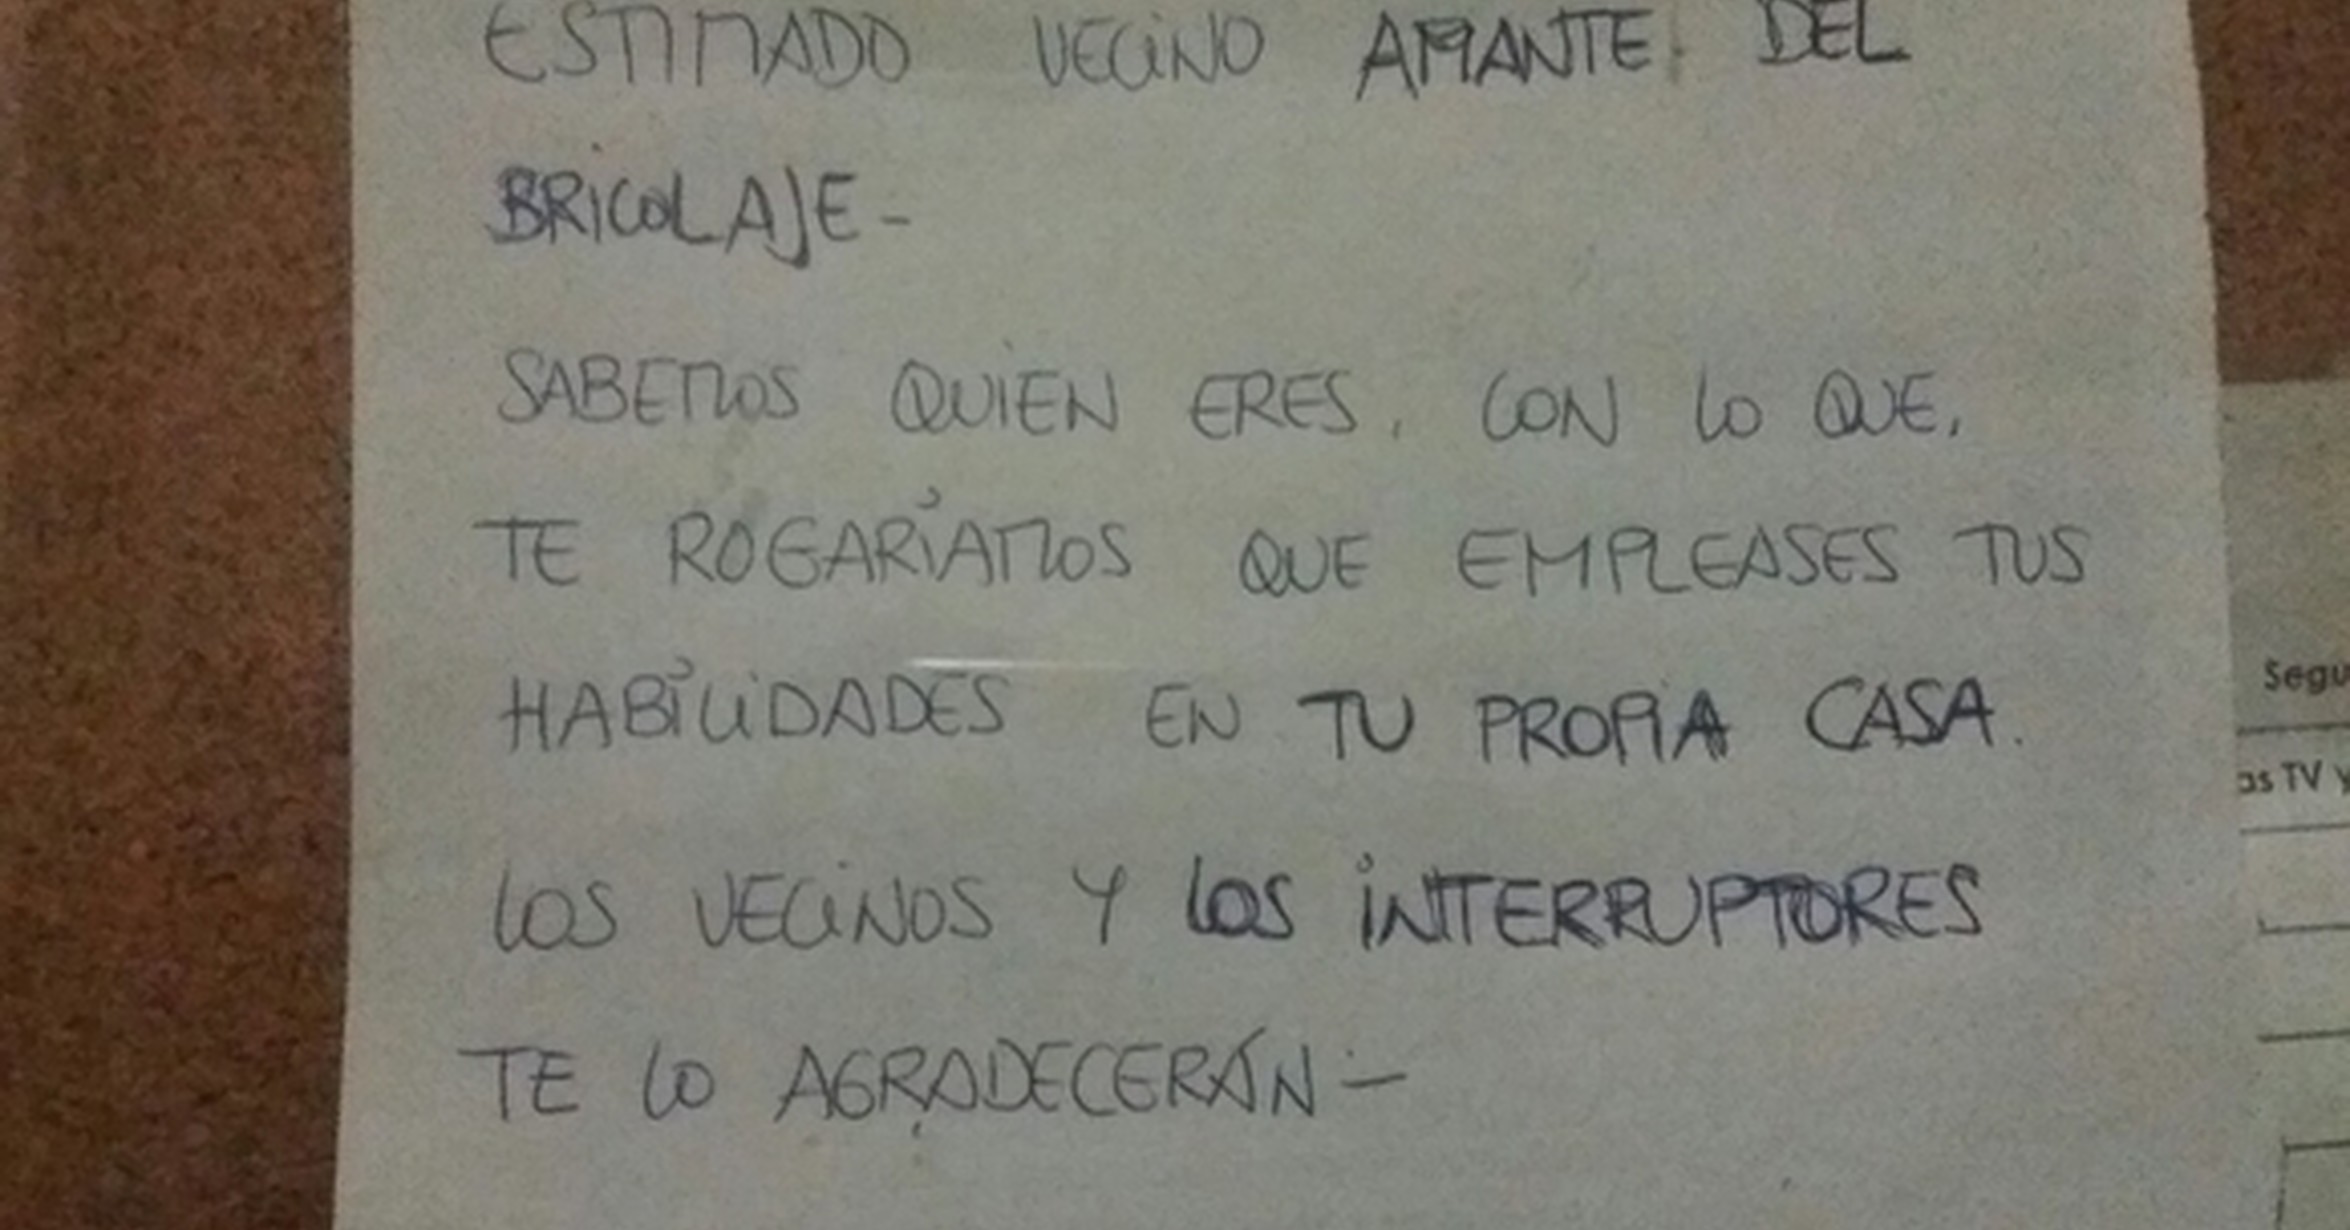 ESTIMADO VECINO AMANTE DEL
BRICOLAJE-
SABEMOS QUIEN ERES, CON LO QUE,
TE ROGARÍAMOS QUE EMPLEASES TUS
HABILIDADES EN TU PROPIA CASA.
LOS VECINOS Y LOS INTERRUPTORES
TE LO AGRADECERÁN-
TV y